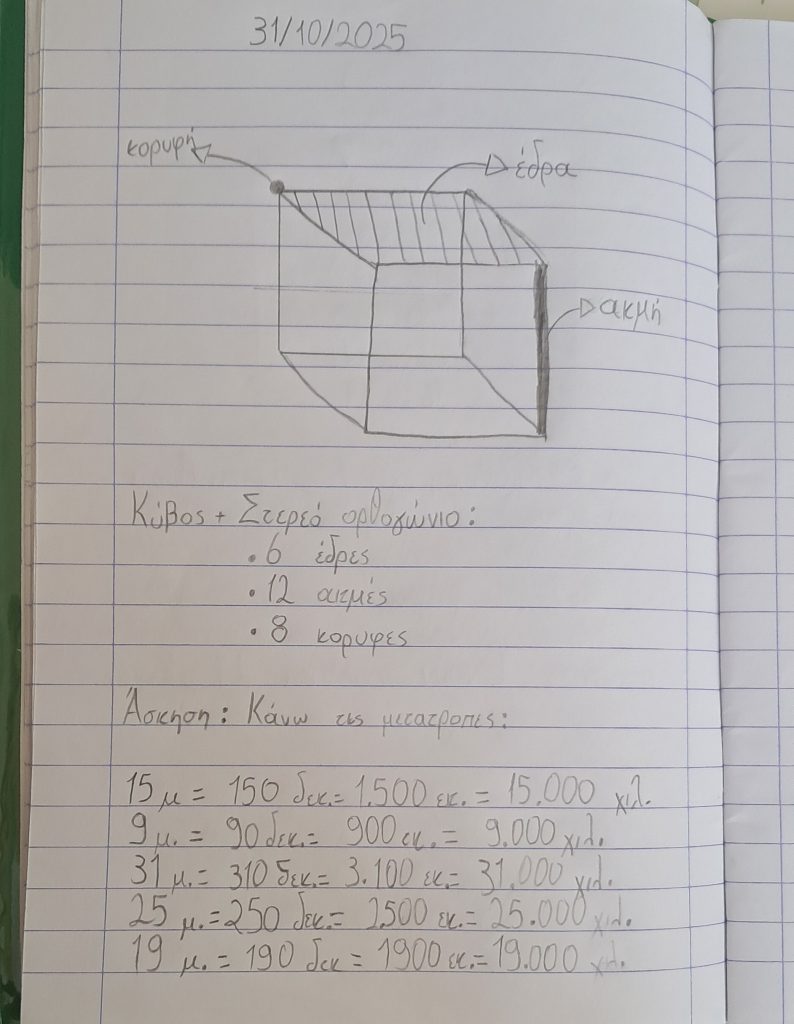 31/10/2025
κορυφή
έδρα
ακμή
Κύβος + Στερεό ορθογώνιο:
• 6 έδρες
• 12 ακμές
• 8 κορυφες
Άσκηση: Κάνω τις μετατροπες:
15 μ = 150 δεκ. = 1.500 εκ. = 15.000 χιλ.
9 μ. = 90 δεκ. = 900 εκ. = 9.000 χιλ.
31 μ. = 310 δεκ. = 3.100 εκ. = 31.000 χιλ.
25 μ. = 250 δεκ. = 2.500 εκ. = 25.000 χιλ.
19 μ. = 190 δεκ = 1900 εκ. = 19.000 χιλ.